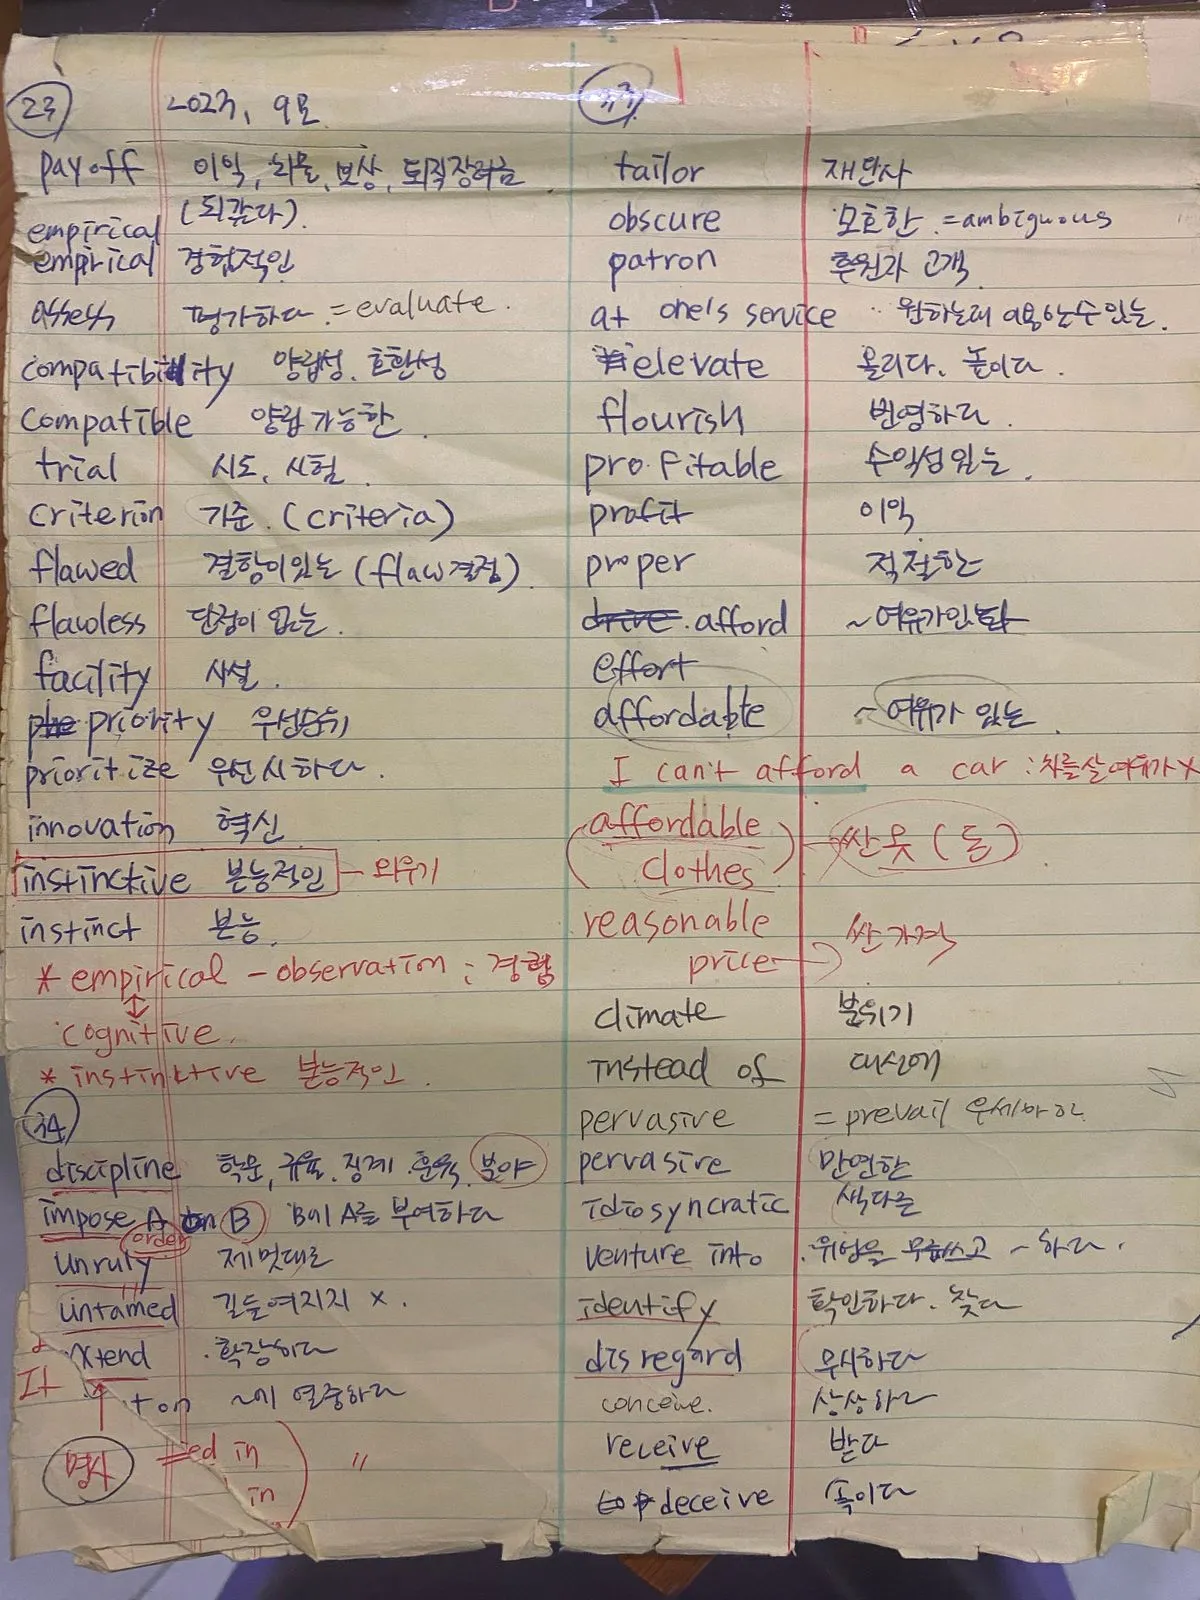 23 2023, 9모
payoff 이익, 뇌물, 보상, 퇴직장려금
(되갚다).
empirical
empirical 경험적인
assess 평가하다 = evaluate.
compatibility 양립성, 호환성
compatible 양립가능한.
trial 시도, 시험.
criterion 기준. (criteria)
flawed 결함이있는 (flaw 결점).
flawless 단점이 없는.
facility 시설.
priority 우선순위
prioritize 우선시하다.
innovation 혁신
instinctive 본능적인 - 외우기
instinct 본능.
* empirical - observation : 경험
↕
cognitive.
* instinktive 본능적인.
34
discipline 학문, 규율, 징계, 훈육, 분야
impose A on B B에 A를 부여하다
order
unruly 제멋대로
untamed 길들여지지 x.
xtend .확장하다
It
t on ~에 열중하다
명사
ed in "
in
33
tailor 재단사
obscure 모호한 = ambiguous
patron 후원자 고객
at one's service 원하는대로 이용할수있는.
elevate 올리다. 높이다.
flourish 번영하다.
profitable 수익성있는.
profit 이익
proper 적절한
drive. afford ~여유가있다
effort
affordable ~여유가 있는.
I can't afford a car : 차를살여유가 x
affordable
clothes 싼옷 (돈)
reasonable
price → 싼가격
climate 분위기
instead of 대신에
pervasive = prevail 우세하다
pervasive 만연한
idiosyncratic 색다른
venture into. 위험을 무릅쓰고 ~하다.
identify 확인하다. 찾다
disregard 무시하다
conceive. 상상하다
receive 받다
deceive 속이다